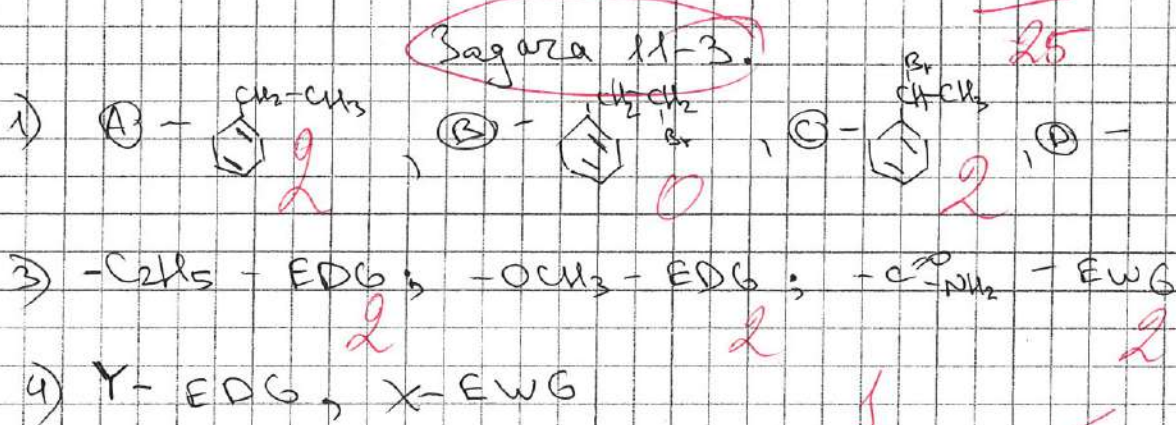 Задача 11-3.
25
1) A - CH₂-CH₃ 2, B - CH₂-CH₂ Br 0, C - Br CH-CH₃ 2, D -
3) -C₂H₅ - EDG; -OCH₃ - EDG; -C=O-NH₂ - EWG
2 2 2
4) Y - EDG, X - EWG 1